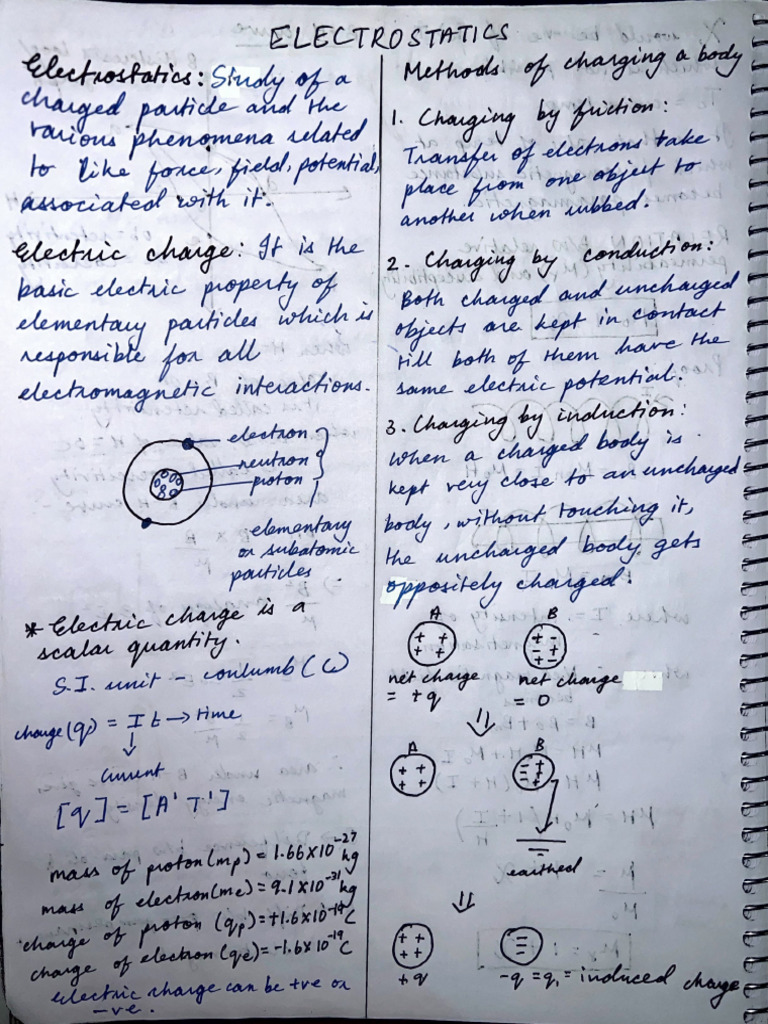 ELECTROSTATICS
Electrostatics: Study of a
charged particle and the
various phenomena related
to like force, field, potential,
associated with it.
Electric charge: It is the
basic electric property of
elementary particles which is
responsible for all
electromagnetic interactions.
electron
neutron
proton
elementary
or subatomic
particles
* Electric charge is a
scalar quantity.
S.I. unit - coulumb (C)
charge (q) = It → time
↓
current
[q] = [A¹ T¹]
mass of proton (mp) = 1.66×10⁻²⁷ kg
mass of electron (me) = 9.1×10⁻³¹ kg
charge of proton (qp) = +1.6×10⁻¹⁹ C
charge of electron (qe) = -1.6×10⁻¹⁹ C
Electric charge can be +ve or
-ve.
Methods of charging a body
1. Charging by friction:
Transfer of electrons take
place from one object to
another when rubbed.
2. Charging by conduction:
Both charged and uncharged
objects are kept in contact
till both of them have the
same electric potential.
3. Charging by induction:
when a charged body is
kept very close to an uncharged
body, without touching it,
the uncharged body gets
oppositely charged.
A B
net charge net charge
= +q = 0
A B
earthed
+q -q = q₁ = induced charge